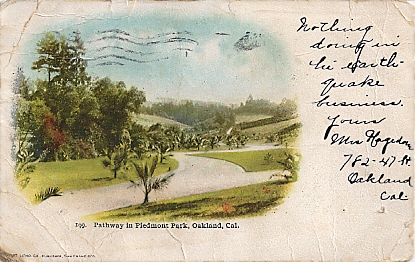 Nothing
doing in
the earth
quake
business.
yours
Mrs
782-47 St
Oakland
Cal
199. Pathway in Piedmont Park, Oakland, Cal.